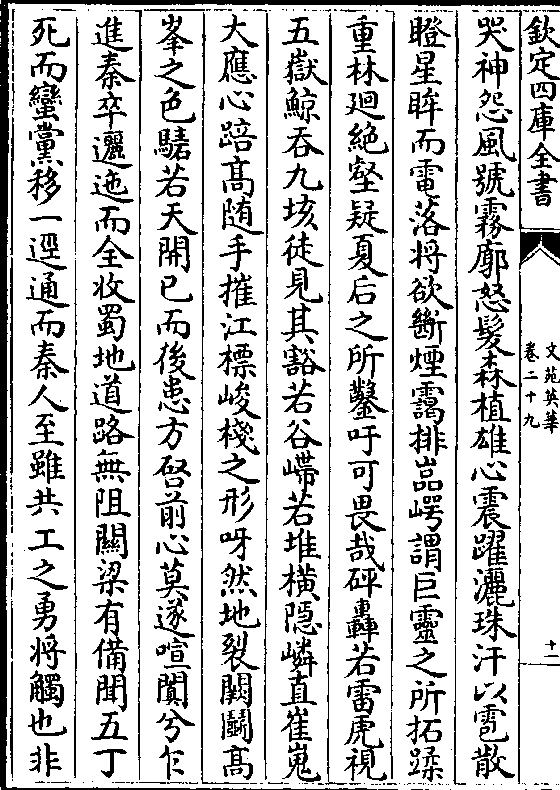 欽定四庫全書
文苑英華
卷二十九
十一
哭神怨風號霧廓怒髮森植雄心震躍灑珠汗以雹散
瞪星眸而電落将欲斷煙靄排嵓崿謂巨靈之所拓蹂
重林廻絶壑疑夏后之所鑿吁可畏哉砰轟若雷虎視
五嶽鯨吞九垓徒見其豁若谷㟷若堆横隱嶙直崔嵬
大應心踣髙随手摧江標峻棧之形呀然地裂闕鬬髙
峯之色騞若天開已而後患方啓前心莫遂喧闐兮乍
進秦卒邐迤而全收蜀地道路無阻關梁有備聞五丁
死而蠻黨移一逕通而秦人至雖共工之勇将觸也非